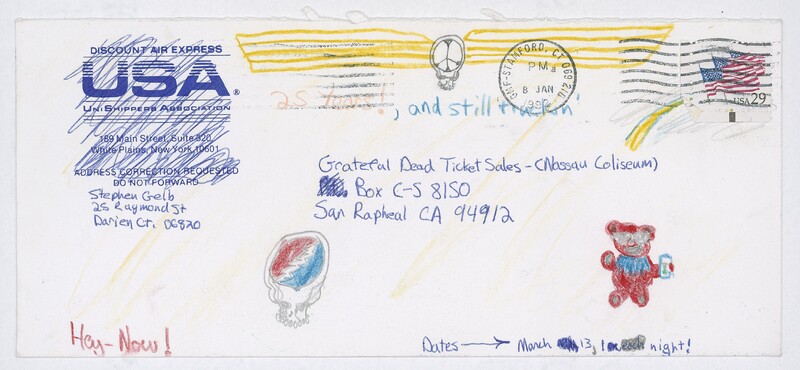 DISCOUNT AIR EXPRESS
USA®
UNISHIPPERS ASSOCIATION
189 Main Street, Suite 320
White Plains, New York 10601
ADDRESS CORRECTION REQUESTED
DO NOT FORWARD
Stephen Gelb
25 Raymond St
Darien Ct. 06820
GMF-STAMFORD, CT 069 210
PM
8 JAN
USA 29
25 Years!, and still truckin'
Grateful Dead Ticket Sales - (Nassau Coliseum)
Box C-S 8150
San Rapheal CA 94912
Hey-Now!
Dates → March 13, 1 each night!